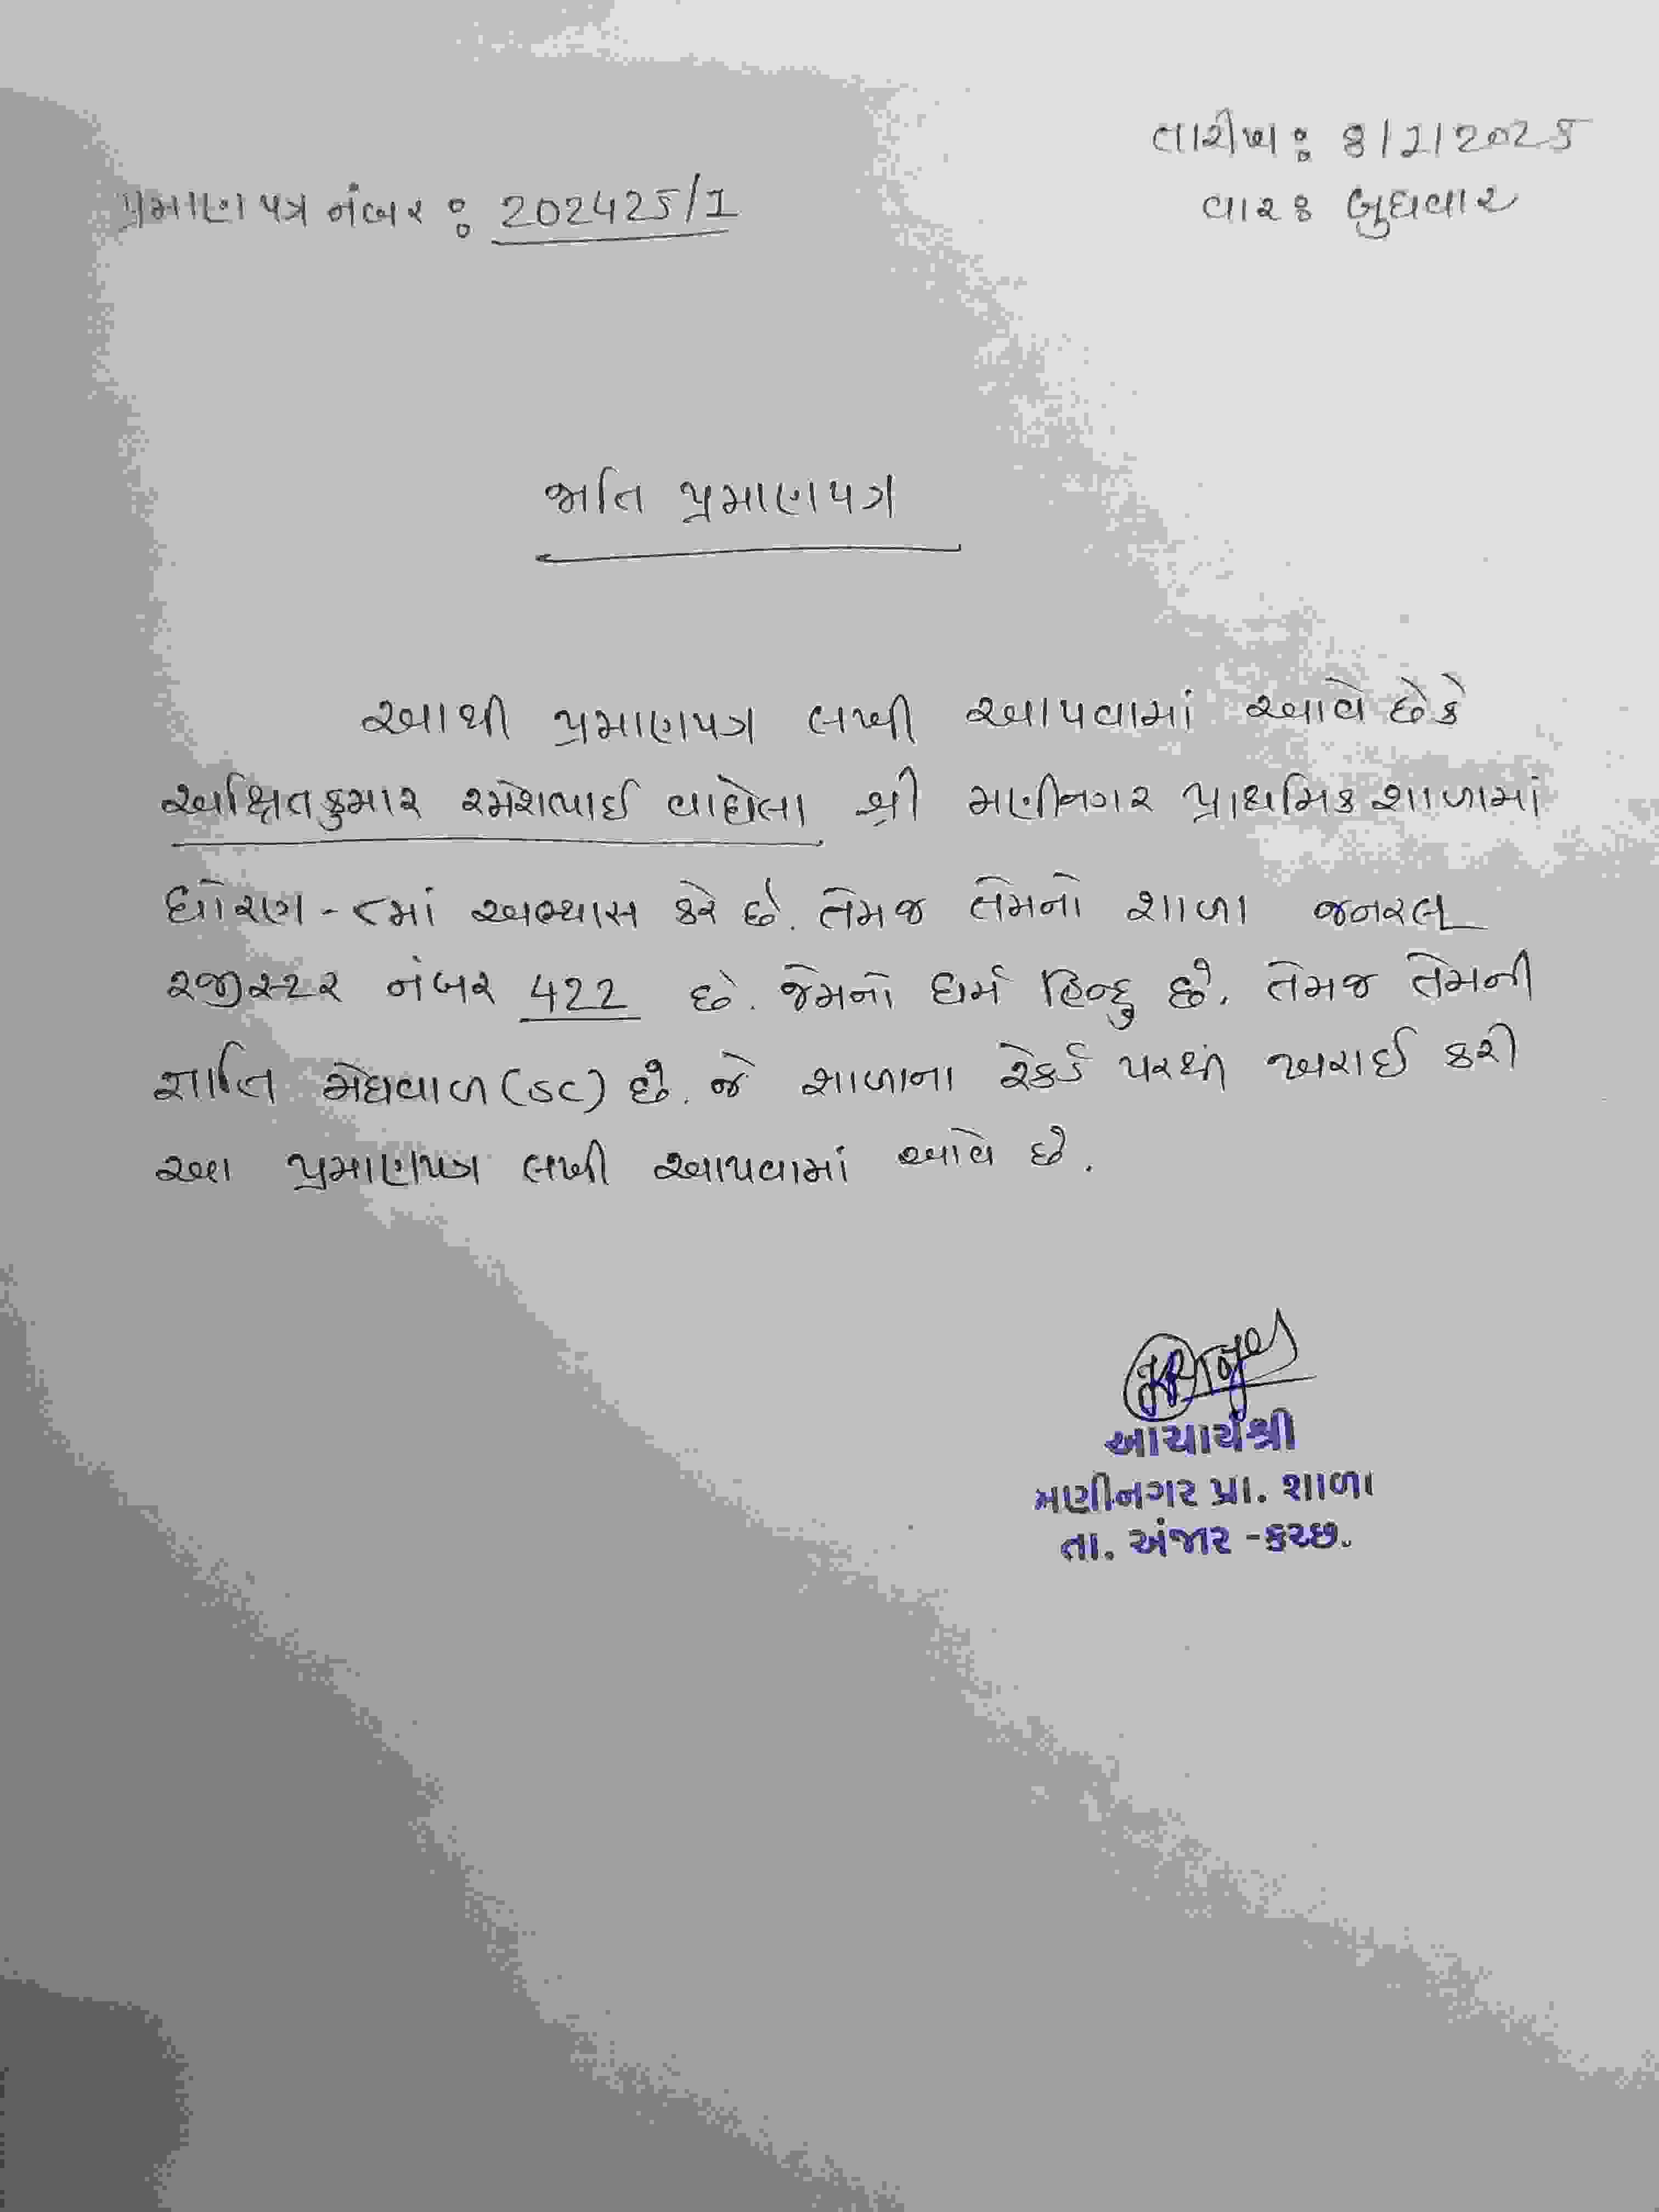 તારીખ : 8/1/2025
પ્રમાણપત્ર નંબર : 202425/1
વાર : બુધવાર
જાતિ પ્રમાણપત્ર
આથી પ્રમાણપત્ર લખી આપવામાં આવે છે કે
અક્ષિતકુમાર રમેશભાઈ વાઘેલા શ્રી મણીનગર પ્રાથમિક શાળામાં
ધોરણ - ૮માં અભ્યાસ કરે છે. તેમજ તેમનો શાળા જનરલ
રજીસ્ટર નંબર 422 છે. જેમનો ધર્મ હિન્દુ છે. તેમજ તેમની
જ્ઞાતિ મેઘવાળ (SC) છે. જે શાળાના રેકર્ડ પરથી ખરાઈ કરી
આ પ્રમાણપત્ર લખી આપવામાં આવે છે.
આચાર્યશ્રી
મણીનગર પ્રા. શાળા
તા. અંજાર -કચ્છ.